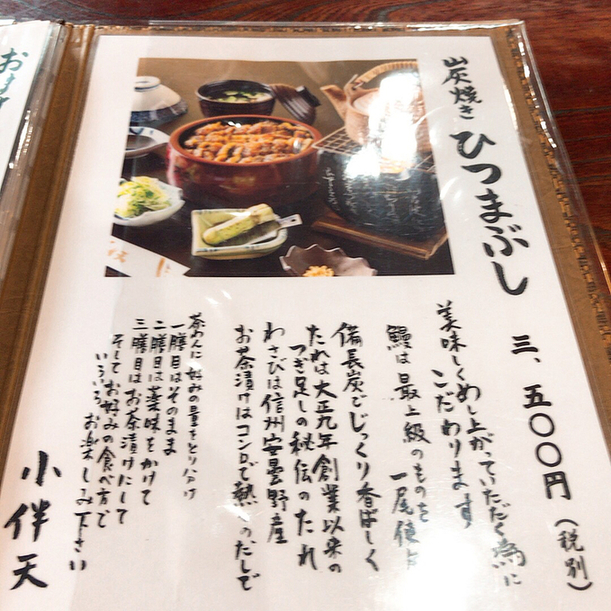 炭焼き ひつまぶし
三、五〇〇円(税別)
美味しくめし上がっていただく為に
こだわります
鰻は最上級のものを
一尾
備長炭でじっくり香ばしく
たれは大正九年創業以来の
つぎ足しの秘伝のたれ
わさびは信州安曇野産
お茶漬けはコンロで熱々のだしで
茶わんにお好みの量をとり分け
一膳目はそのまま
二膳目は薬味をかけて
三膳目はお茶漬けにして
そしてお好みの食べ方で
いろいろお楽しみ下さい
小伴天